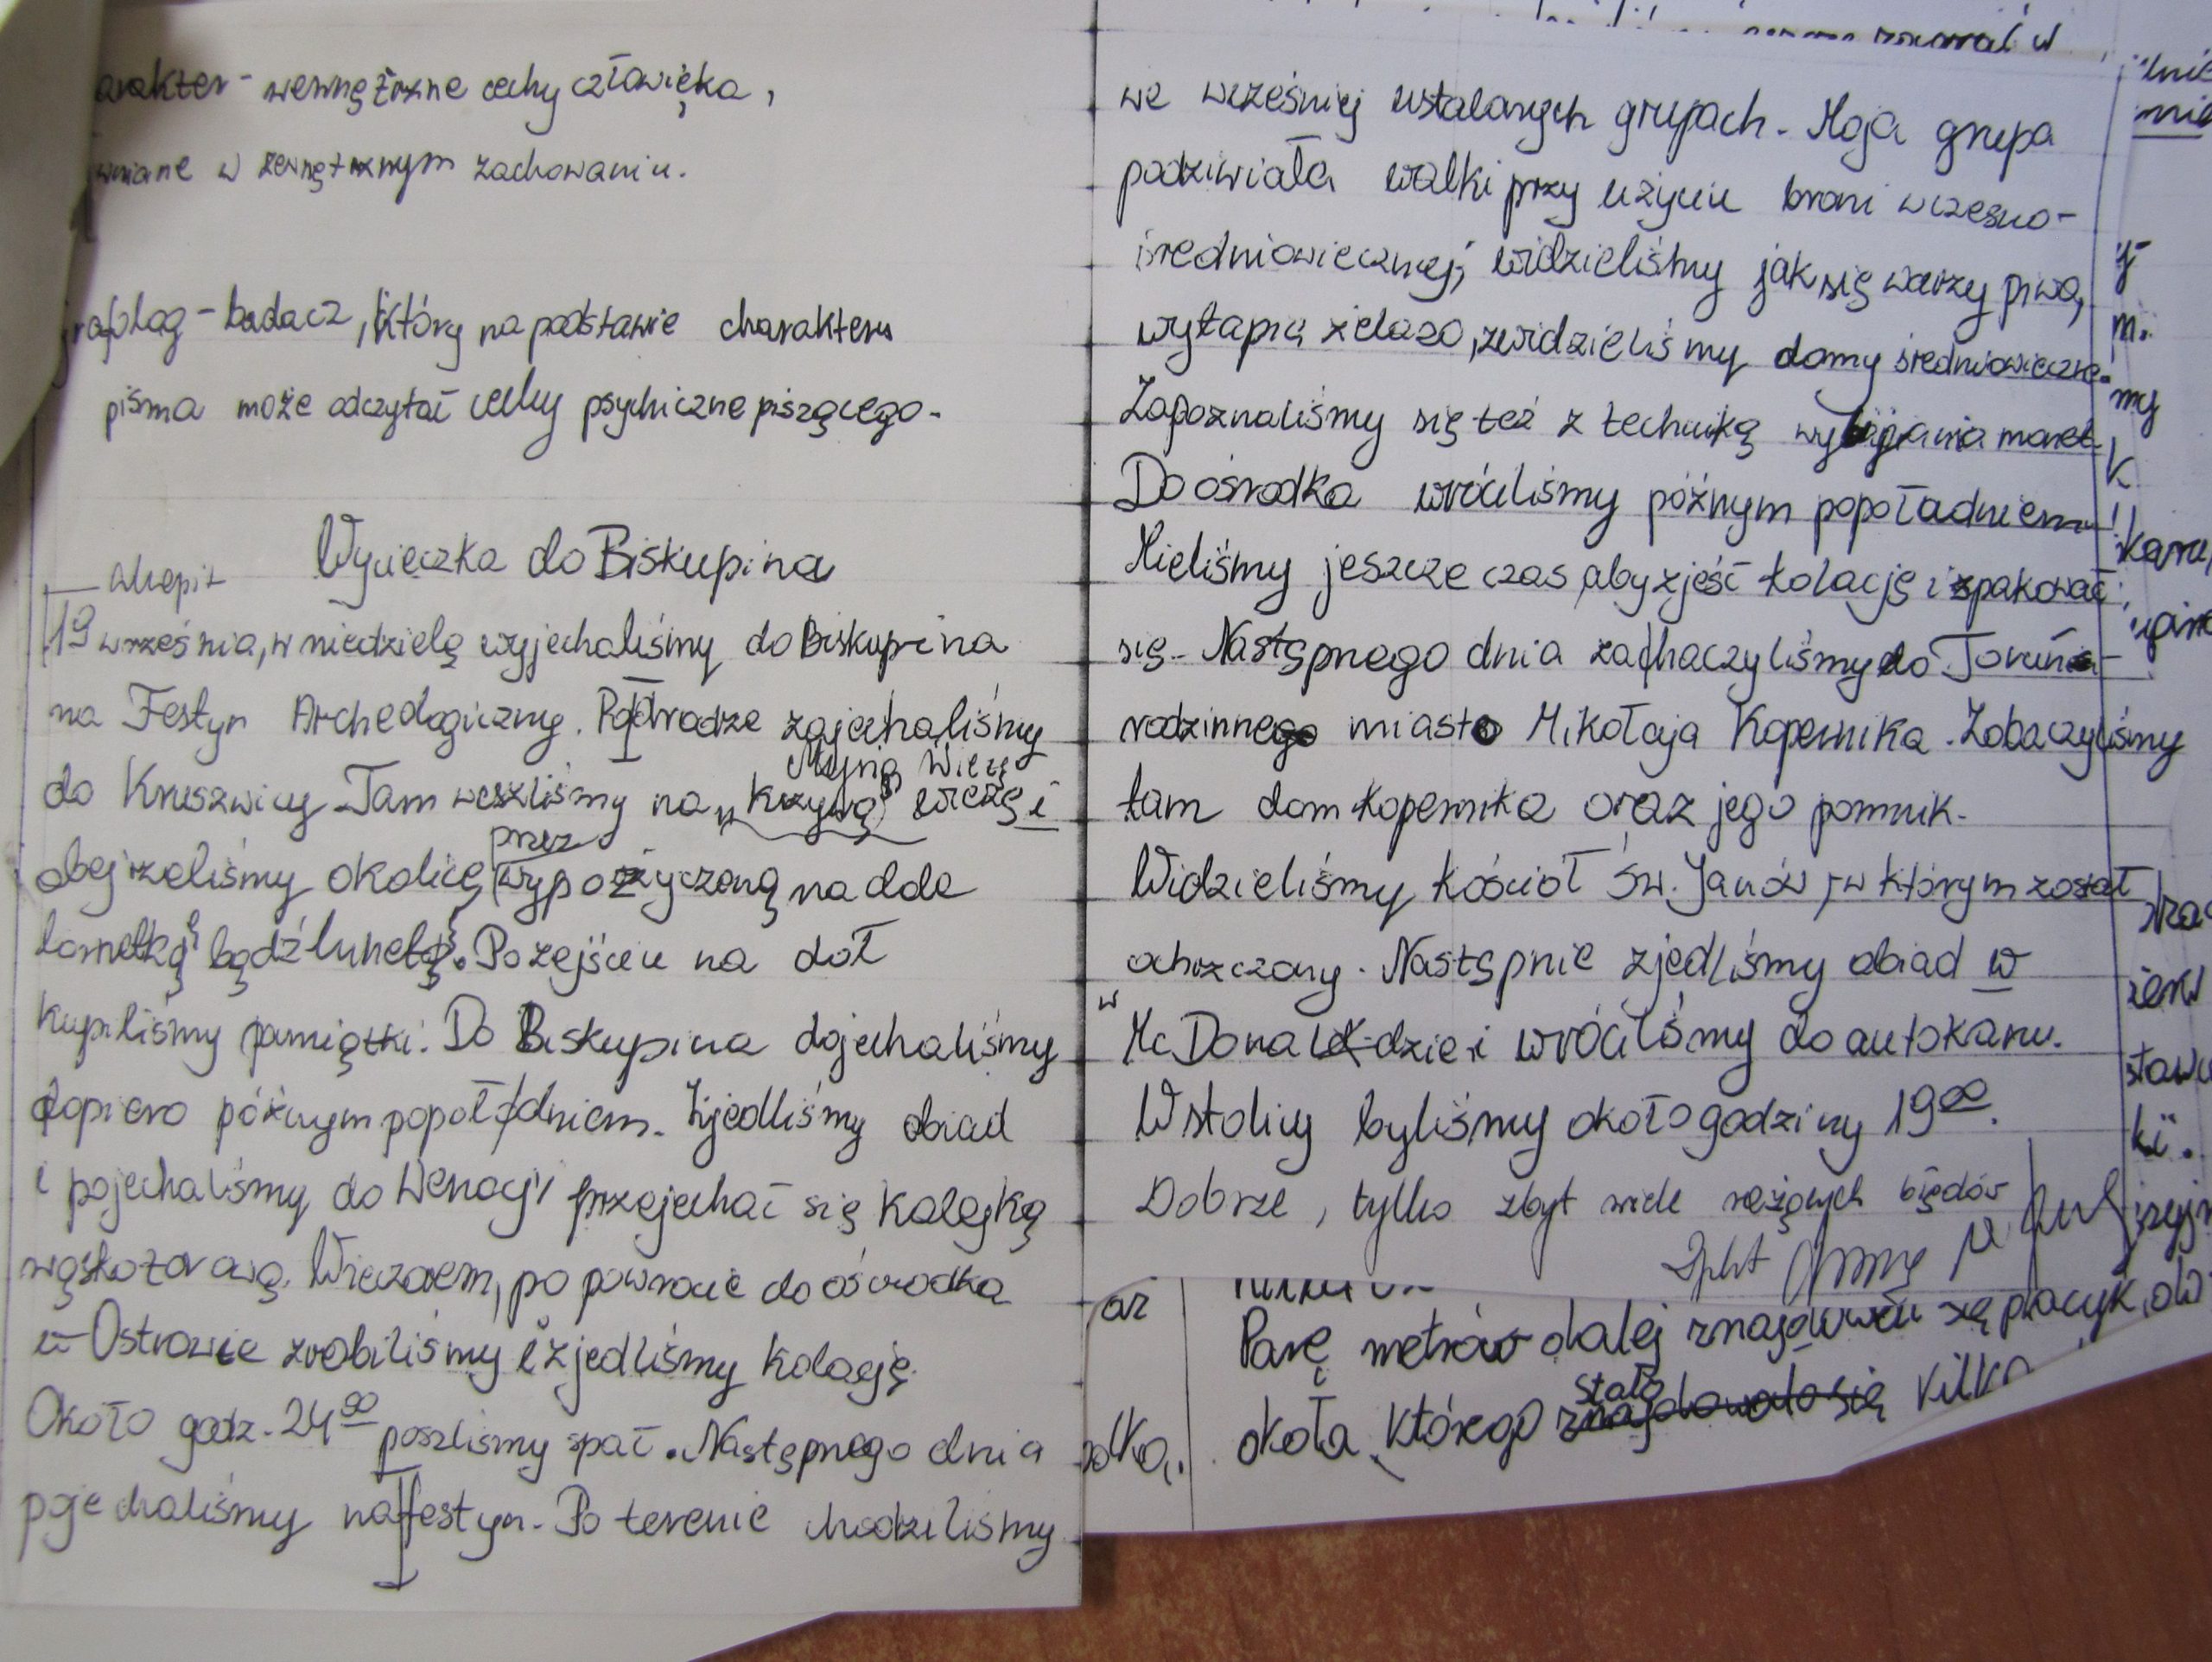 arakter - wewnętrzne cechy człowieka,
w zewnętrznym zachowaniu.
grafolog - badacz, który na podstawie charakteru
pisma może odczytać cechy psychiczne piszącego.
Wycieczka do Biskupina
akapit
19 września, w niedzielę wyjechaliśmy do Biskupina
na Festyn Archeologiczny. Po drodze zajechaliśmy
Mysią Wieżę
do Kruszwicy. Tam weszliśmy na „Krzywą" wieżę i
przez
obejrzeliśmy okolicę wypożyczoną na dole
lornetką bądź lunetą. Po zejściu na dół
kupiliśmy pamiątki. Do Biskupina dojechaliśmy
dopiero późnym popołudniem. Zjedliśmy obiad
i pojechaliśmy do Wenecji przejechać się kolejką
wąskotorową. Wieczorem, po powrocie do ośrodka
w Ostrowie zrobiliśmy i zjedliśmy kolację.
Około godz. 24 00 poszliśmy spać. Następnego dnia
pojechaliśmy na festyn. Po terenie chodziliśmy
we wcześniej ustalonych grupach. Moja grupa
podziwiała walki przy użyciu broni wczesno-
średniowiecznej, widzieliśmy jak się warzy piwo,
wytapia żelazo, zwidzieliśmy domy średniowieczne.
Zapoznaliśmy się też z techniką wybijania monet.
Do ośrodka wróciliśmy późnym popołudniem.
Mieliśmy jeszcze czas, aby zjeść kolację i spakować
się. Następnego dnia zachaczyliśmy do Torunia -
rodzinnego miasta Mikołaja Kopernika. Zobaczyliśmy
tam dom Kopernika oraz jego pomnik.
Widzieliśmy Kościół Św. Janów, w którym został
ochrzczony. Następnie zjedliśmy obiad w
w
Mc Donaldzie i wróciliśmy do autokaru.
W stolicy byliśmy około godziny 19 00.
Dobrze, tylko zbyt wiele rażących błędów
Parę metrów dalej znajdował się placyk,
stało
okoła którego znajdowało się kilka